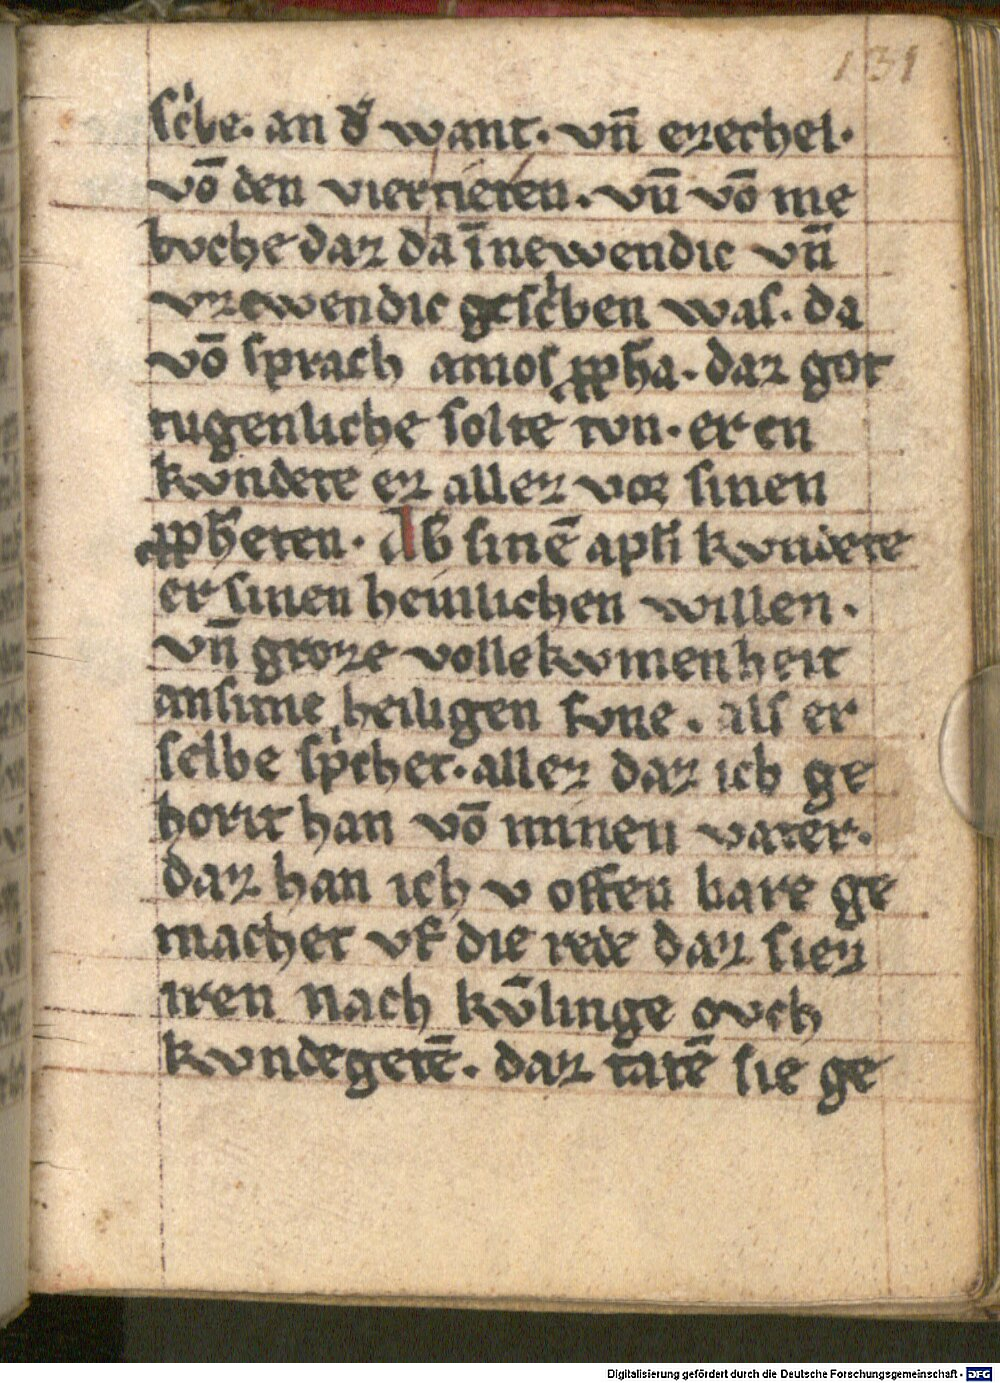 131
scͥbe. an dˢ want. vn̄ ezechel.
vō den viertieren. vn̄ vō me
buche daz da īnewendic vn̄
vzewendic gescͥben was. da
vō sprach amos ꝓph̄a. daz got
tugenliche solte tvn. er en
kvndete ez allez vor sinen
ꝓph̄eten. Ab̄ sinē apłi kvndete
er sinen heimlichen willen.
vn̄ groze vollekvmenheit
an sime heiligen svne. als er
selbe spͥchet. allez daz ich ge
horit han vō minen vater.
daz han ich v offen bare ge
machet vf die rede daz siez
iren nach kv̄linge ovch
kvndegetē. daz tatē sie ge
Digitalisierung gefördert durch die Deutsche Forschungsgemeinschaft - DFG